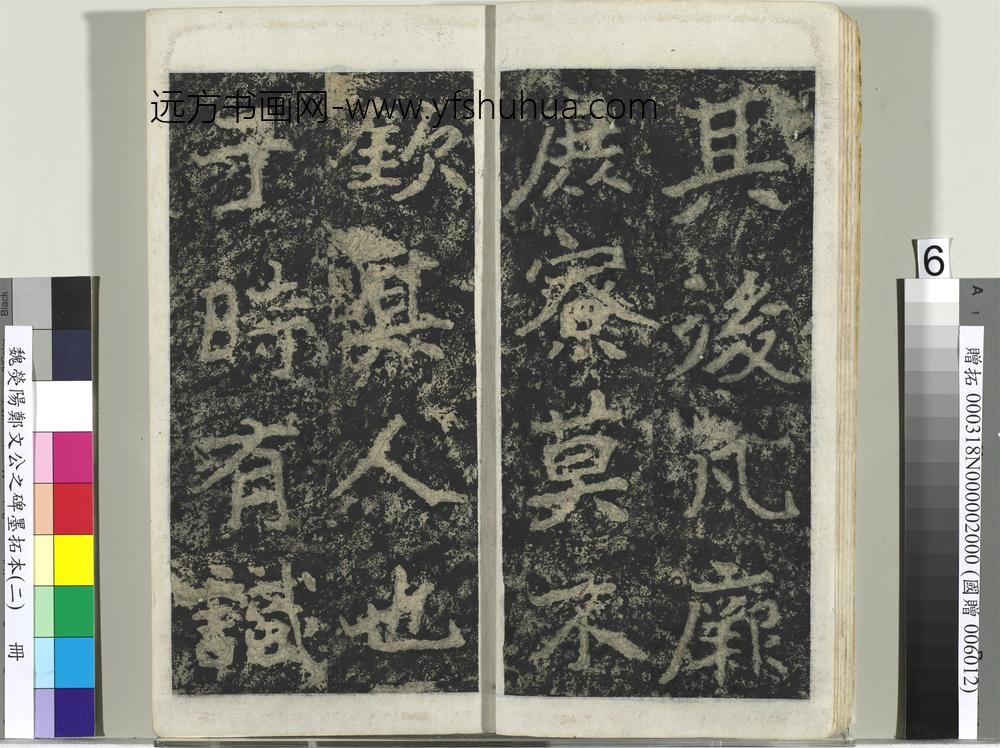 远方书画网-www.yfshuhua.com
其後凡厥
庶寮莫不
欽其人也
于時有識
魏熒陽鄭文公之碑墨拓本(二) 冊
贈拓 000318N000002000 (國贈 006012)
6
A
1
Black